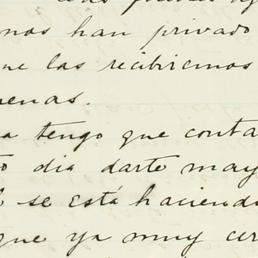 nos han privado
ue las recibiremos
enas.
a tengo que conta
o dia darte may
se está haciend
que ya muy cer